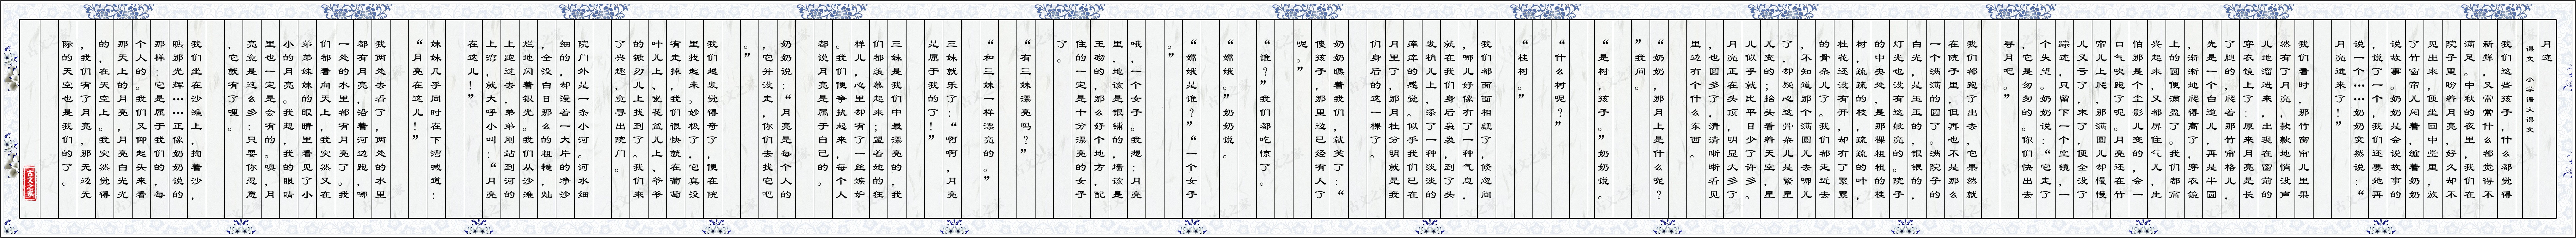 月迹
课文：小学语文课文
我们这些孩子，什么都觉得
新鲜，又常常什么都觉得不
满足。中秋的夜里，我们在
院子里盼着月亮，好久却不
见出来，便坐回中堂里，放
了竹窗帘儿闷着，缠着奶奶
说故事。奶奶是会说故事的
，说了一个，还要她再
说一个……奶奶突然说：“
月亮进来了！”
我们看时，那竹窗帘儿里果
然有了月亮，款款地悄没声
儿地溜进来，出现在窗前的
穿衣镜上了：原来月亮是长
了腿的，爬着那竹帘格儿，
先是一个白道儿，再是半圆
，渐渐地爬得高了，穿衣镜
上的圆便满盈了。我们都高
兴起来，又都屏住气儿，生
怕那是个尘影儿变的，会一
口气吹跑了呢。月亮还在竹
帘儿上爬，那满圆儿却慢慢
儿又亏了，末了，便全没了
踪迹，只留下一个空镜，一
个失望。奶奶说：“它走了
，它是匆匆的。你们快出去
寻月吧。”
我们都跑了出去，它果然就
在院子里，但再也不是那么
一个满满的圆了。满院子的
白光，是玉玉的，银银的，
灯光也没有这般明亮的。院子
的中央处，是那棵粗粗的桂
树，疏疏的枝，疏疏的叶，
桂花还没有开，却有了累累
的骨朵儿了。我们都走近去
，不知道那个满圆儿去哪儿
了，却疑心这骨朵儿是繁星
儿变的；抬头看着天空，星
儿似乎就比平日少了许多。
月亮正在头顶，明显大多了
，也圆多了，清清晰晰看见
里边有个什么东西。
“奶奶，那月上是什么呢？
”我问。
“是树，孩子。”奶奶说。
“什么树呢？”
“桂树。”
我们都面面相觑了，倏忽间
，哪儿好像有了一种气息，
就在我们身后袅袅，到了头
发梢儿上，添了一种淡淡的
痒痒的感觉。似乎我们已在
了月里，那月桂分明就是我
们身后的这一棵了。
奶奶瞧着我们，就笑了：“
傻孩子，那里边已经有人了
呢。”
“谁？”我们都吃惊了。
“嫦娥。”奶奶说。
“嫦娥是谁？”“一个女子
。”
哦，一个女子。我想：月亮
里，地该是银铺的，墙该是
玉砌的，那么好个地方，配
住的一定是十分漂亮的女子
了。
“有三妹漂亮吗？”
“和三妹一样漂亮的。”
三妹就乐了：“啊啊，月亮
是属于我的了！”
三妹是我们中最漂亮的，我
们都羡慕起来；望着她的狂
样儿，心里却有了一丝嫉妒
。我们便争执起来，每个人
都说月亮是属于自己的。
奶奶说：“月亮是每个人的
，它并没走，你们去找它吧
。”
我们越发觉得奇了，便在院
里找起来。妙极了，它真没
有走掉，我们很快就在葡萄
叶儿上、瓷花盆儿上、爷爷
的锨刃儿上找到了。我们来
了兴趣，竟寻出院门。
院门外是一条小河。河水细
细的，却漫着一大片的净沙
，全没白日那么的粗糙，灿
烂地闪着银光。我们从沙滩
上跑过去，弟弟刚站到河的
上湾，就大呼小叫：“月亮
在这儿！”
妹妹几乎同时在下湾喊道：
“月亮在这儿！”
我两处去看了，两处的水里
都有月亮，沿着河边跑，哪
一处的水里都有月亮了。我
们都看向天上，我突然又在
弟弟妹妹的眼睛里看见了小
小的月亮。我想，我的眼睛
里也一定是会有的。噢，月
亮竟是这么多：只要你愿意
，它就有了哩。
我们坐在沙滩上，掬着沙，
瞧那光辉……正像奶奶说的
那样：它是属于我们的，每
个人的。我们又仰起头来看
那天上的月亮，月亮白光光
的，在天空上。我突然觉得
，我们有了月亮，那无边无
际的天空也是我们的了。
古文之家